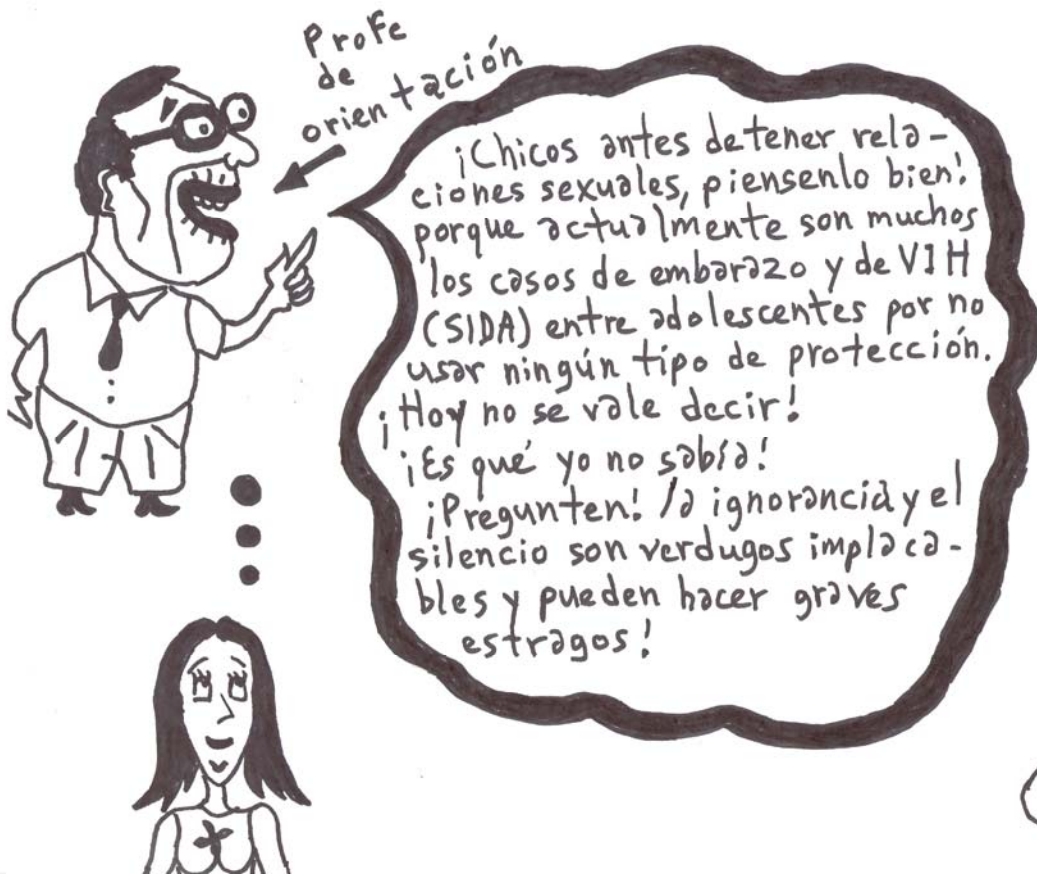 Profe
de
orientación
¡Chicos antes de tener rela-
ciones sexuales, piensenlo bien!
porque actualmente son muchos
los casos de embarazo y de VIH
(SIDA) entre adolescentes por no
usar ningún tipo de protección.
¡Hoy no se vale decir!
¡Es qué yo no sabía!
¡Pregunten! la ignorancia y el
silencio son verdugos implaca-
bles y pueden hacer graves
estragos!